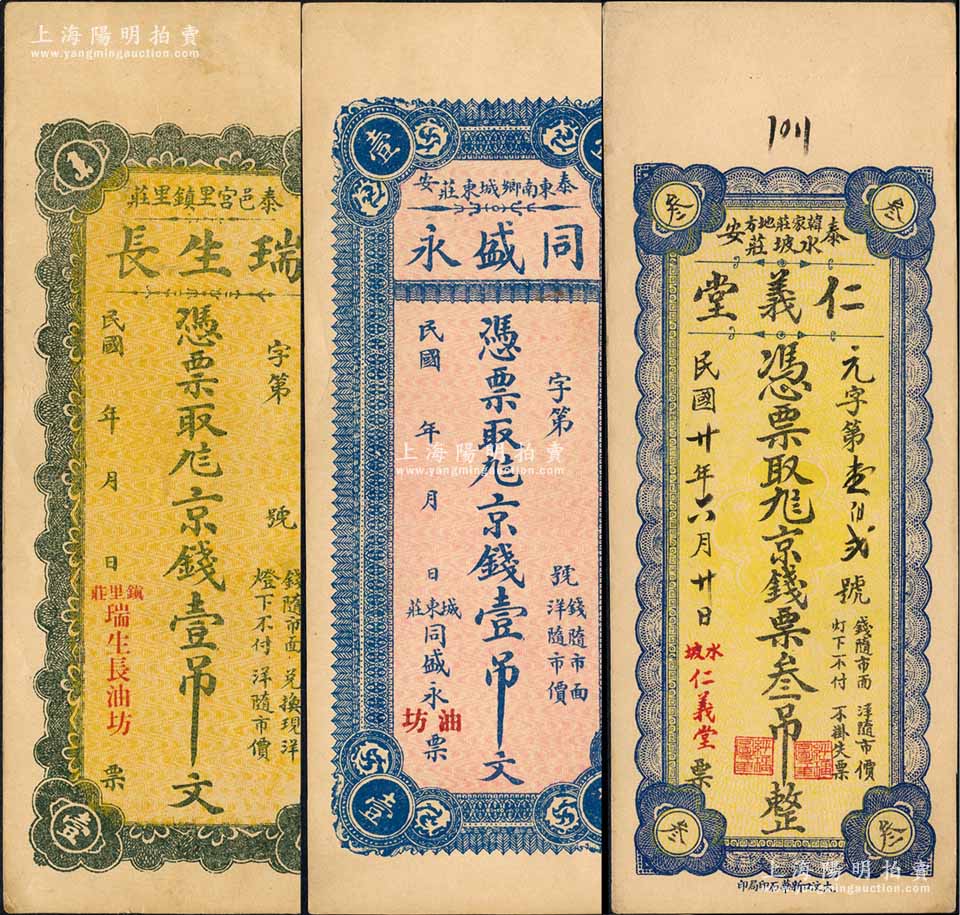 上海陽明拍賣
www.yangmingauction.com
壹
泰邑宮里鎮里莊
瑞生長
字第 號
憑票取尨京錢壹吊文
民國 年 月 日
錢隨市面 兌換現洋
燈下不付 洋隨市價
鎮里莊
瑞生長油坊
票
壹
泰東南鄉城東莊
安
同盛永
字第 號
憑票取尨京錢壹吊文
民國 年 月 日
錢隨市面
洋隨市價
城東莊
同盛永
油坊
票
壹
上海陽明拍賣
www.yangmingauction.com
叁
叁
韓家莊地方
泰 安
水坡莊
仁義堂
元字第 號
憑票取尨京錢票叁吊整
民國廿年六月廿日
錢隨市面 洋隨市價
灯下不付 不掛失票
水坡
仁義堂
票
叁
叁
石印局印
上海陽明拍賣
www.yangmingauction.com